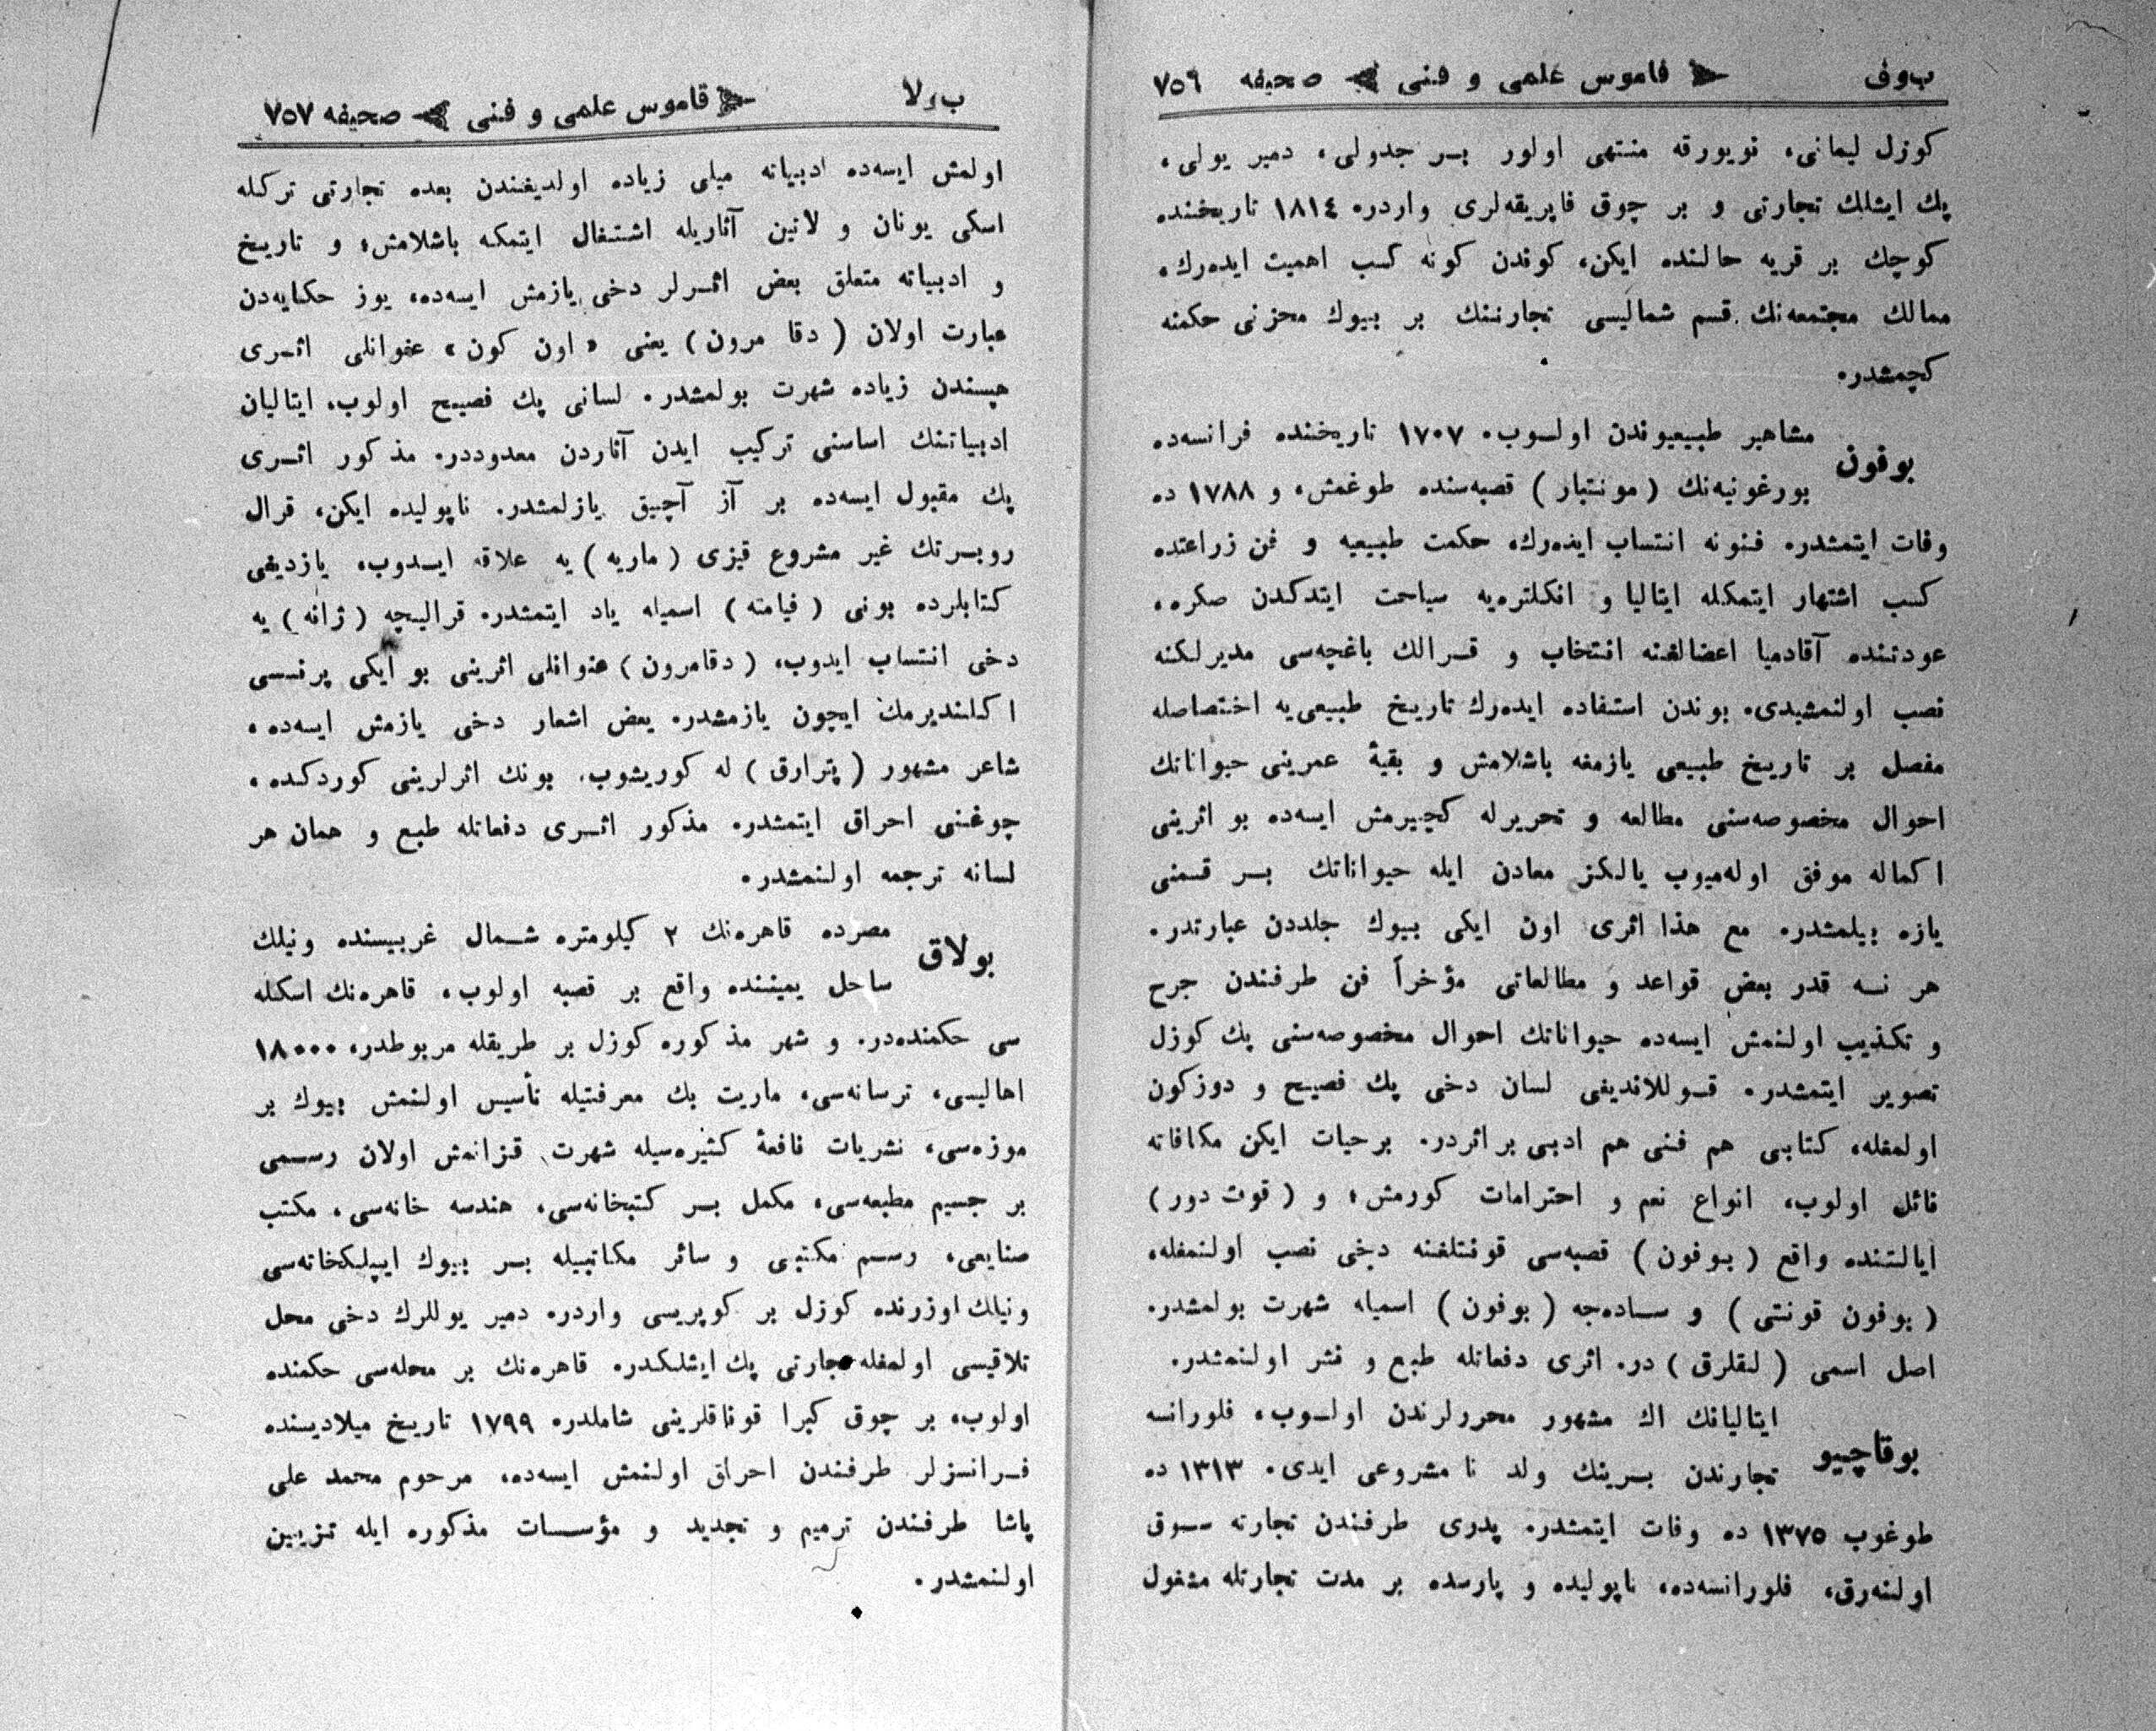 ب‌وف ‎ قاموس علمی و فنی ‎ صحیفه ٧٥٩
کوزل لیمانی، نویورقه منتهی اولور بر جدولی، دمیر یولی،
پك ایشلك تجارتی و بر چوق فابریقه‌لری واردر. ١٨١٤ تاریخنده
کوچك بر قریه حالنده ایکن، کوندن کونه کسب اهمیت ایده‌رك،
ممالك مجتمعه‌نك قسم شمالیسی تجارتنك بر بیوك مخزنی حکمنه
کچمشدر.
بوفون
مشاهیر طبیعیوندن اولوب، ١٧٠٧ تاریخنده فرانسه‌ده
بورغونیه‌نك (مونتبار) قصبه‌سنده طوغمش، و ١٧٨٨ ده
وفات ایتمشدر. فنونه انتساب ایده‌رك، حکمت طبیعیه و فن زراعتده
کسب اشتهار ایتمکله ایتالیا و انکلتره‌یه سیاحت ایتدکدن صکره،
عودتنده آقادمیا اعضالغنه انتخاب و قرالك باغچه‌سی مدیرلکنه
نصب اولنمشیدی. بوندن استفاده ایده‌رك تاریخ طبیعی‌یه اختصاصله
مفصل بر تاریخ طبیعی یازمغه باشلامش و بقیهٔ عمرینی حیواناتك
احوال مخصوصه‌سنی مطالعه و تحریرله کچیرمش ایسه‌ده بو اثرینی
اکماله موفق اوله‌میوب یالکز معادن ایله حیواناتك بر قسمنی
یازه بیلمشدر. مع هذا اثری اون ایکی بیوك جلددن عبارتدر.
هر نسه قدر بعض قواعد و مطالعاتی مؤخراً فن طرفندن جرح
و تکذیب اولنمش ایسه‌ده حیواناتك احوال مخصوصه‌سنی پك کوزل
تصویر ایتمشدر. قوللاندیغی لسان دخی پك فصیح و دوزکون
اولمغله، کتابی هم فنی هم ادبی بر اثردر. برحیات ایکن مکافاته
نائل اولوب، انواع نعم و احترامات کورمش؛ و (قوت دور)
ایالتنده واقع (بوفون) قصبه‌سی قونتلغنه دخی نصب اولنمغله،
(بوفون قونتی) و ساده‌جه (بوفون) اسمیله شهرت بولمشدر.
اصل اسمی (لقلرق) در. اثری دفعاتله طبع و نشر اولنمشدر.
بوقاچیو
ایتالیانك اك مشهور محررلرندن اولوب، فلورانسه
تجارندن برینك ولد نا مشروعی ایدی. ١٣١٣ ده
طوغوب ١٣٧٥ ده وفات ایتمشدر. پدری طرفندن تجارته سوق
اولنه‌رق، فلورانسه‌ده، ناپولیده و پارسده بر مدت تجارتله مشغول
ب‌ولا ‎ قاموس علمی و فنی ‎ صحیفه ٧٥٧
اولمش ایسه‌ده ادبیاته میلی زیاده اولدیغندن بعده تجارتی ترکله
اسکی یونان و لاتین آثاریله اشتغال ایتمکه باشلامش؛ و تاریخ
و ادبیاته متعلق بعض اثرلر دخی یازمش ایسه‌ده، یوز حکایه‌دن
عبارت اولان (دقا مرون) یعنی «اون کون» عنوانلی اثری
هپسندن زیاده شهرت بولمشدر. لسانی پك فصیح اولوب، ایتالیان
ادبیاتنك اساسنی ترکیب ایدن آثاردن معدوددر. مذکور اثری
پك مقبول ایسه‌ده بر آز آچیق یازلمشدر. ناپولیده ایکن، قرال
روبرتك غیر مشروع قیزی (ماریه) یه علاقه ایدوب، یازدیغی
کتابلرده بونی (فیامته) اسمیله یاد ایتمشدر. قرالیچه (ژانه) یه
دخی انتساب ایدوب، (دقامرون) عنوانلی اثرینی بو ایکی پرنسسی
اکلندیرمك ایچون یازمشدر. بعض اشعار دخی یازمش ایسه‌ده،
شاعر مشهور (پترارق) له کوریشوب، بونك اثرلرینی کوردکده،
چوغنی احراق ایتمشدر. مذکور اثری دفعاتله طبع و همان هر
لسانه ترجمه اولنمشدر.
بولاق
مصرده قاهره‌نك ٢ کیلومتره شمال غربیسنده ونیلك
ساحل یمیننده واقع بر قصبه اولوب، قاهره‌نك اسکله
سی حکمنده‌در. و شهر مذکوره کوزل بر طریقله مربوطدر. ١٨٠٠٠
اهالیسی، ترسانه‌سی، ماریت بك معرفتیله تأسیس اولنمش بیوك بر
موزه‌سی، نشریات نافعهٔ کثیره‌سیله شهرت قزانمش اولان رسمی
بر جسیم مطبعه‌سی، مکمل بر کتبخانه‌سی، هندسه خانه‌سی، مکتب
صنایعی، رسم مکتبی و سائر مکاتبیله بر بیوك ایپلکخانه‌سی
ونیلك اوزرنده کوزل بر کوپریسی واردر. دمیر یوللرك دخی محل
تلاقیسی اولمغله تجارتی پك ایشلکدر. قاهره‌نك بر محله‌سی حکمنده
اولوب، بر چوق کبرا قوناقلرینی شاملدر. ١٧٩٩ تاریخ میلادیسنده
فرانسزلر طرفندن احراق اولنمش ایسه‌ده، مرحوم محمد علی
پاشا طرفندن ترمیم و تجدید و مؤسسات مذکوره ایله تزیین
اولنمشدر.